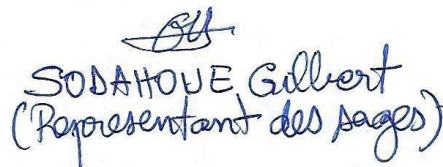 SODAHOUE Gilbert
(Representant des sages)